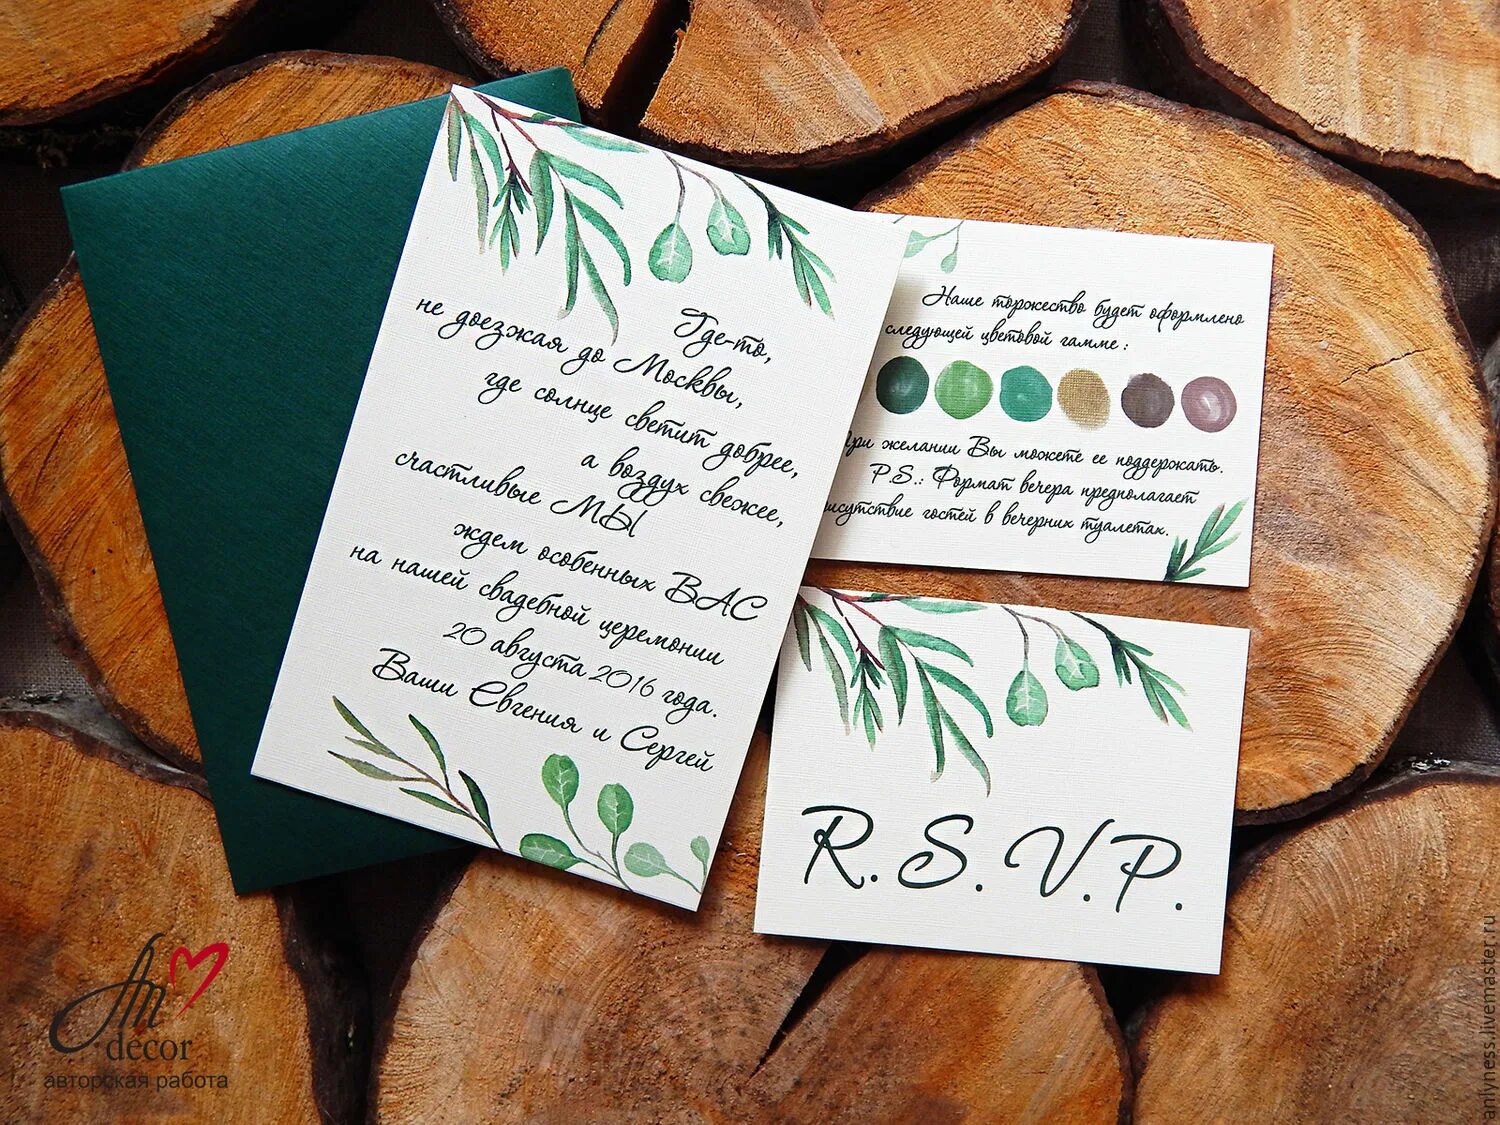 Где-то,
не доезжая до Москвы,
где солнце светит добрее,
а воздух свежее,
счастливые МЫ
ждем особенных ВАС
на нашей свадебной церемонии
20 августа 2016 года.
Ваши Евгения и Сергей
Наше торжество будет оформлено
следующей цветовой гамме :
При желании Вы можете ее поддержать.
P.S.: Формат вечера предполагает
исутствие гостей в вечерних туалетах.
R.S.V.P.
An
decor
авторская работа
anlyness.livemaster.ru